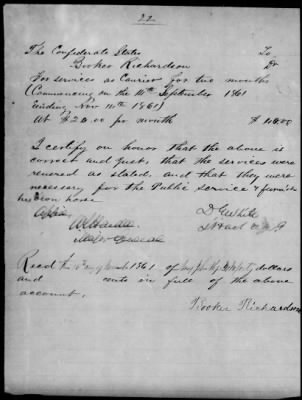 22
The Confederate States To
Booker Richardson Dr
For services as Courier for two months
(Commencing on the 10th September 1861
Ending Nov 10th 1861)
At $20.00 per month $40.00
I certify on honor that the above is
correct and just, that the services were
rendered as stated, and that they were
necessary for the Public service & furnish
his own horse
D G White
Recd this 10th day of 1861 of dollars
and cents in full of the above
account.
Booker Richardson